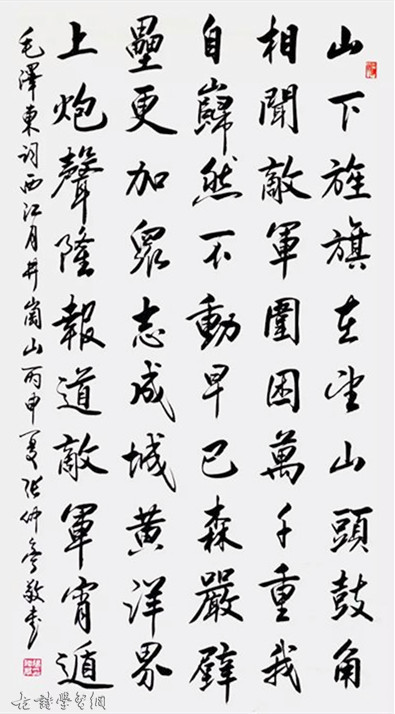 山下旌旗在望山頭鼓角
相聞敵軍圍困萬千重我
自巋然不動早已森嚴壁
壘更加眾志成城黃洋界
上炮聲隆報道敵軍宵遁
毛澤東詞西江月井崗山丙申夏張仲亭敬書